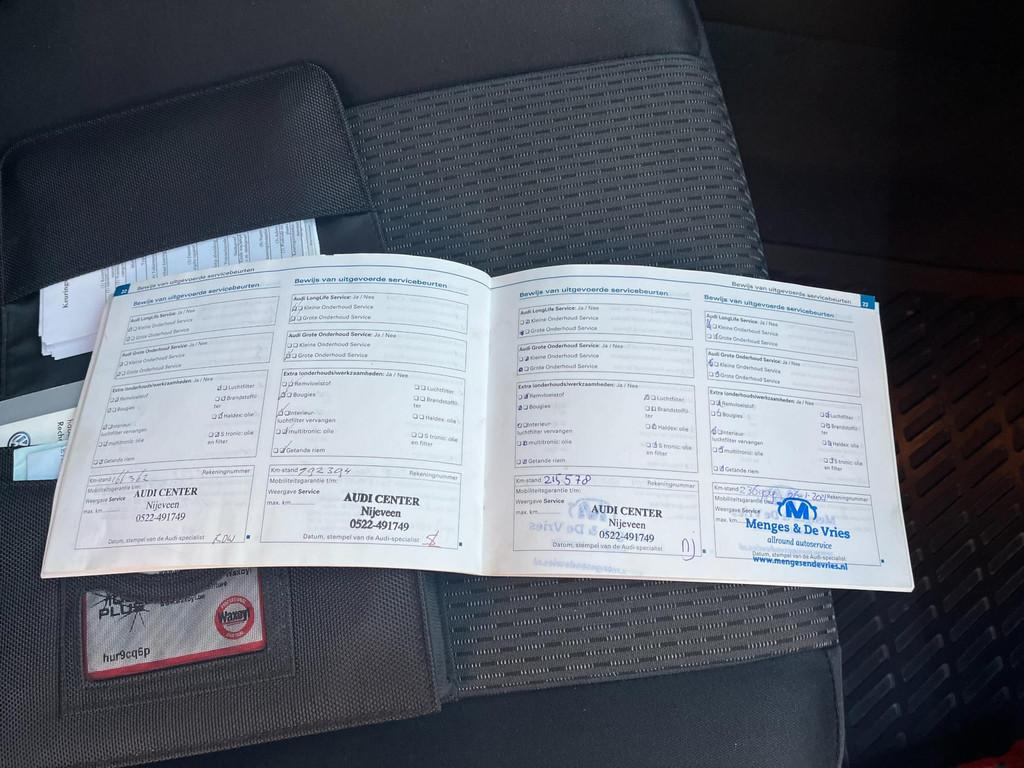 22
Bewijs van uitgevoerde servicebeurten
Bewijs van uitgevoerde servicebeurten
Audi LongLife Service: Ja / Nee
Kleine Onderhoud Service
Grote Onderhoud Service
Audi Grote Onderhoud Service: Ja / Nee
Kleine Onderhoud Service
Grote Onderhoud Service
Extra (onderhouds)werkzaamheden: Ja / Nee
Remvloeistof
Luchtfilter
Bougies
Brandstoffilter
Interieur-
luchtfilter vervangen
Haldex: olie
multitronic: olie
S tronic: olie
en filter
Getande riem
Km-stand
Rekeningnummer
Mobiliteitsgarantie t/m:
Weergave Service
max. km
AUDI CENTER
Nijeveen
0522-491749
Datum, stempel van de Audi-specialist
Bewijs van uitgevoerde servicebeurten
Audi LongLife Service: Ja / Nee
Kleine Onderhoud Service
Grote Onderhoud Service
Audi Grote Onderhoud Service: Ja / Nee
Kleine Onderhoud Service
Grote Onderhoud Service
Extra (onderhouds)werkzaamheden: Ja / Nee
Remvloeistof
Luchtfilter
Bougies
Brandstoffil-
ter
Interieur-
luchtfilter vervangen
Haldex: olie
multitronic: olie
S tronic: olie
en filter
Getande riem
Km-stand 192394
Rekeningnummer
Mobiliteitsgarantie t/m:
Weergave Service
max. km
AUDI CENTER
Nijeveen
0522-491749
Datum, stempel van de Audi-specialist
Bewijs van uitgevoerde servicebeurten
23
Bewijs van uitgevoerde servicebeurten
Audi LongLife Service: Ja / Nee
Kleine Onderhoud Service
Grote Onderhoud Service
Audi Grote Onderhoud Service: Ja / Nee
Kleine Onderhoud Service
Grote Onderhoud Service
Extra (onderhouds)werkzaamheden: Ja / Nee
Remvloeistof
Luchtfilter
Bougies
Brandstoffil-
ter
Interieur-
luchtfilter vervangen
Haldex: olie
multitronic: olie
S tronic: olie
en filter
Getande riem
Km-stand 215578
Rekeningnummer
Mobiliteitsgarantie t/m:
Weergave Service
max. km
AUDI CENTER
Nijeveen
0522-491749
Datum, stempel van de Audi-specialist
Bewijs van uitgevoerde servicebeurten
Audi LongLife Service: Ja / Nee
Kleine Onderhoud Service
Grote Onderhoud Service
Audi Grote Onderhoud Service: Ja / Nee
Kleine Onderhoud Service
Grote Onderhoud Service
Extra (onderhouds)werkzaamheden: Ja / Nee
Remvloeistof
Luchtfilter
Bougies
Brandstoffil-
ter
Interieur-
luchtfilter vervangen
Haldex: olie
multitronic: olie
S tronic: olie
en filter
Getande riem
Km-stand
Rekeningnummer
Mobiliteitsgarantie t/m:
Weergave Service
max. km
M
Menges & De Vries
allround autoservice
Datum, stempel van de Audi-specialist
www.mengesendevries.nl
PLUS
Waxoyl
hur9cq6p